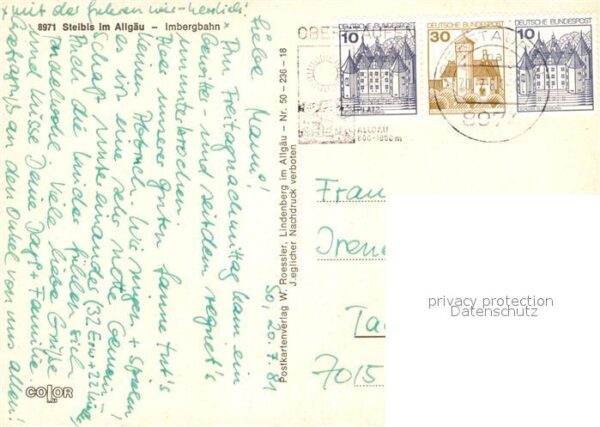 *mit der fahren wir - herrlich!
8971 Steibis im Allgäu - Imbergbahn*
So, 20.7.81
Liebe Mami!
Am Freitagnachmittag kam ein
Gewitter - und seitdem regnet's
ununterbrochen.
Aber unserer guten Laune tut's
keinen Abbruch. Wir singen + spielen!
es ist eine sehr nette Gemein-
schaft miteinander (32 Erw + 22 Kinder)
Auch die Kinder fühlen sich
pudelwohl. Viele liebe Grüße
und Küsse Deine Dagi + Familie
an den Onkel von uns allen!
COLOR
Postkartenverlag W. Roessler, Lindenberg im Allgäu - Nr. 50 - 236 - 18
Jeglicher Nachdruck verboten
10 DEUTSCHE BUNDESPOST
30 DEUTSCHE BUNDESPOST
10 DEUTSCHE BUNDESPOST
OBERSTAUFEN
ALLGÄU
897
Frau
Irene
Ta
7015
privacy protection
Datenschutz